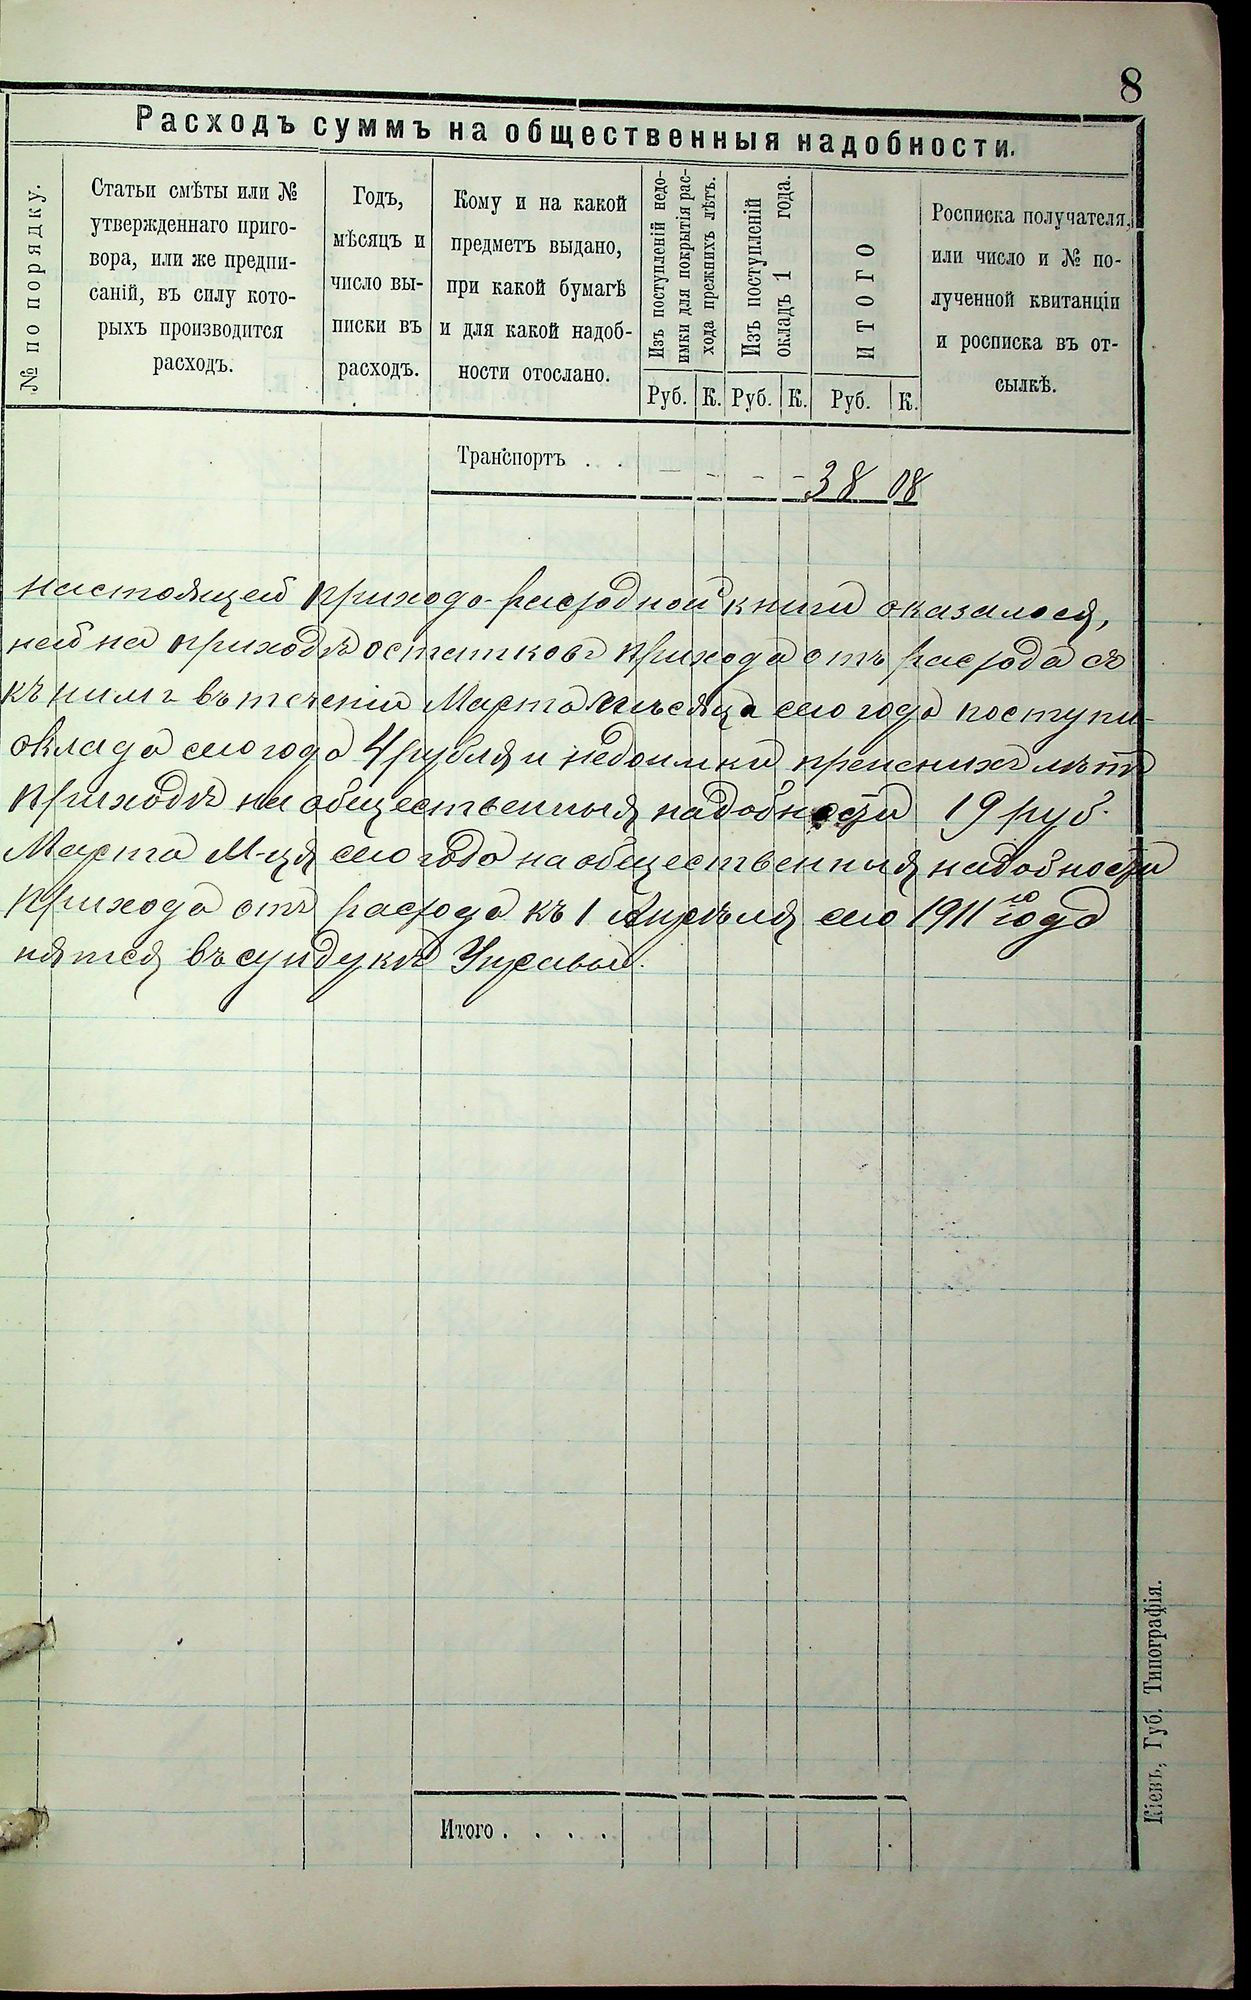 8
Расходъ суммъ на общественныя надобности.
№ по порядку.
Статьи смѣты или №
утвержденнаго приго-
вора, или же предпи-
саній, въ силу кото-
рыхъ производится
расходъ.
Годъ,
мѣсяцъ и
число вы-
писки въ
расходъ.
Кому и на какой
предметъ выдано,
при какой бумагѣ
и для какой надоб-
ности отослано.
Изъ поступленій недо-
имки для покрытія рас-
хода прежнихъ лѣтъ.
Изъ поступленій
окладъ 1 года.
ИТОГО
Росписка получателя,
или число и № по-
лученной квитанціи
и росписка въ от-
сылкѣ.
Руб. К. Руб. К. Руб. К.
Транспортъ . . — - - - 38 08
настоящей приходо-расходной книги оказалося,
ней на приходѣ остатковъ прихода отъ расхода съ
къ нимъ въ теченіи Марта мѣсяца сего года поступи-
оклада сего года 4 рубля и недоимки прежнихъ лѣтъ
приходѣ на общественныя надобности 19 руб.
Марта М-ця сего года на общественныя надобности
прихода отъ расхода къ 1 Апрѣля сего 1911 го года
нятся въ сундукѣ Управы.
Итого . . . .
Кіевъ, Губ. Типографія.